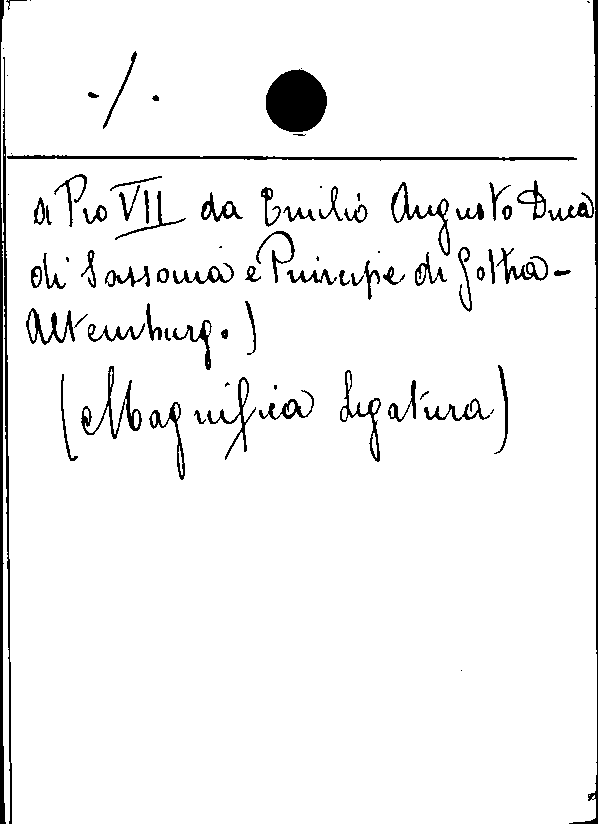 ·/.
a Pio VII da Emilio Augusto Duca
di Sassonia e Principe di Gotha-
Altemburg.)
(Magnifica legatura)